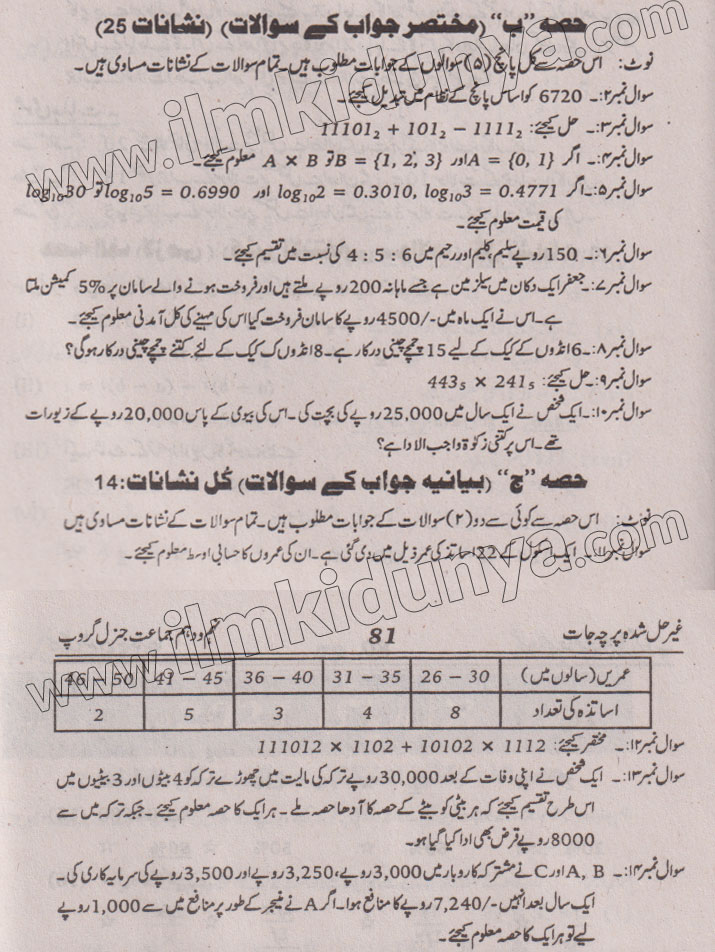 حصہ "ب" (مختصر جواب کے سوالات) (نشانات 25)
نوٹ: اس حصہ سے کل پانچ (۵) سوالوں کے جوابات مطلوب ہیں۔ تمام سوالات کے نشانات مساوی ہیں۔
سوال نمبر ۲:۔ 6720 کو اساس پانچ کے نظام میں تبدیل کیجئے۔
سوال نمبر ۳:۔ حل کیجئے: 11101₂ + 101₂ − 1111₂
سوال نمبر ۴:۔ اگر A = {0, 1} اور B = {1, 2, 3} تو A × B معلوم کیجئے۔
سوال نمبر ۵:۔ اگر log₁₀2 = 0.3010, log₁₀3 = 0.4771 اور log₁₀5 = 0.6990 تو log₁₀30
کی قیمت معلوم کیجئے۔
سوال نمبر ۶:۔ 150 روپے سلیم، کلیم اور رحیم میں 4 : 5 : 6 کی نسبت میں تقسیم کیجئے۔
سوال نمبر ۷:۔ جعفر ایک دکان میں سیلز مین ہے جسے ماہانہ 200 روپے ملتے ہیں اور فروخت ہونے والے سامان پر 5% کمیشن ملتا
ہے۔ اس نے ایک ماہ میں 4500/- روپے کا سامان فروخت کیا اس کی مہینے کی کل آمدنی معلوم کیجئے۔
سوال نمبر ۸:۔ 6 انڈوں کے کیک کے لیے 15 چمچے چینی درکار ہے۔ 8 انڈوں کے کیک کے لئے کتنے چمچے چینی درکار ہوگی؟
سوال نمبر ۹:۔ حل کیجئے: 443₅ × 241₅
سوال نمبر ۱۰:۔ ایک شخص نے ایک سال میں 25,000 روپے کی بچت کی۔ اس کی بیوی کے پاس 20,000 روپے کے زیورات
تھے۔ اس پر کتنی زکوٰۃ واجب الادا ہے؟
حصہ "ج" (بیانیہ جواب کے سوالات) کُل نشانات: 14
نوٹ: اس حصہ سے کوئی سے دو (۲) سوالات کے جوابات مطلوب ہیں۔ تمام سوالات کے نشانات مساوی ہیں
سوال نمبر ۱۱:۔ ایک اسکول کے 22 اساتذہ کی عمر ذیل میں دی گئی ہے۔ ان کی عمروں کا حسابی اوسط معلوم کیجئے۔
غیر حل شدہ پرچہ جات 81 نہم و دہم جماعت جنرل گروپ
عمریں (سالوں میں) 26 − 30 31 − 35 36 − 40 41 − 45 46 − 50
اساتذہ کی تعداد 8 4 3 5 2
سوال نمبر ۱۲:۔ مختصر کیجئے: 111012 × 1102 + 10102 × 1112
سوال نمبر ۱۳:۔ ایک شخص نے اپنی وفات کے بعد 30,000 روپے ترکہ کی مالیت میں چھوڑے ترکہ کو 4 بیٹوں اور 3 بیٹیوں میں
اس طرح تقسیم کیجئے کہ ہر بیٹی کو بیٹے کے حصہ کا آدھا حصہ ملے۔ ہر ایک کا حصہ معلوم کیجئے۔ جبکہ ترکہ میں سے
8000 روپے قرض بھی ادا کیا گیا ہو۔
سوال نمبر ۱۴:۔ A, B اور C نے مشترکہ کاروبار میں 3,000 روپے، 3,250 روپے اور 3,500 روپے کی سرمایہ کاری کی۔
ایک سال بعد انہیں 7,240/- روپے کا منافع ہوا۔ اگر A نے منیجر کے طور پر منافع میں سے 1,000 روپے
لیے تو ہر ایک کا حصہ معلوم کیجئے۔
www.ilmkidunya.com
www.ilmkidunya.com
www.ilmkidunya.com